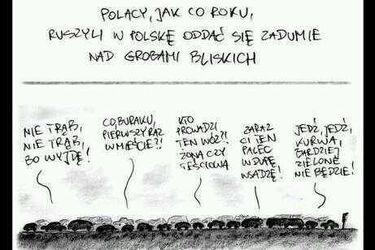 POLACY, JAK CO ROKU,
RUSZYLI W POLSKĘ ODDAĆ SIĘ ZADUMIE
NAD GROBAMI BLISKICH
NIE TRĄB,
NIE TRĄB,
BO WYJDĘ!
CO, BURAKU,
PIERWSZY RAZ
W MIEŚCIE?!
KTO
PROWADZI
TEN WÓZ?!
ŻONA CZY
TEŚCIOWA
ZARAZ
CI TEN
PALEC
W DUPĘ
WSADZĘ!
JEDŹ, JEDŹ,
KURWA,
BARDZIEJ
ZIELONE
NIE BĘDZIE!